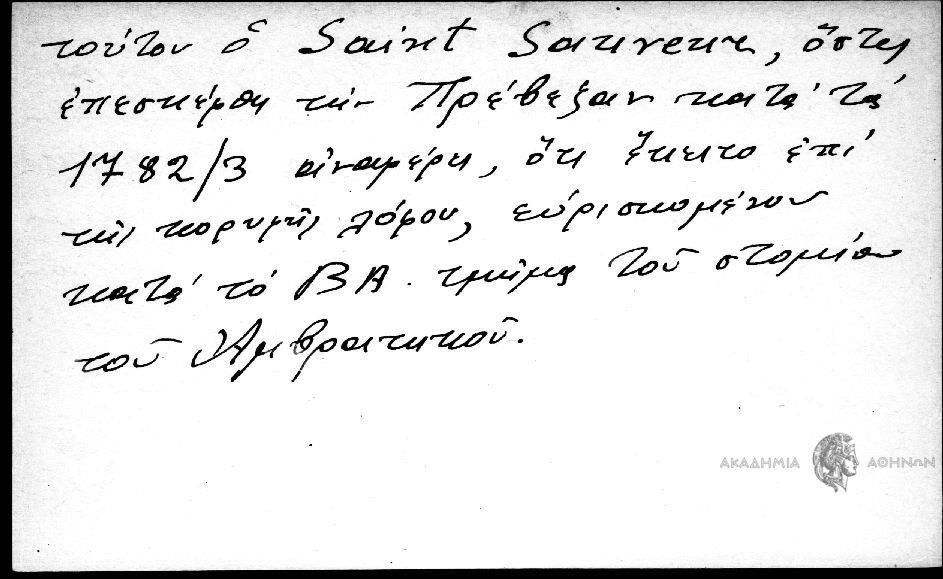 τούτου ὁ Saint Sauveur, ὅστις
ἐπεσκέφθη τὴν Πρέβεζαν κατὰ τὰ
1782/3 ἀναφέρει, ὅτι ἔκειτο ἐπὶ
τῆς κορυφῆς λόφου, εὑρισκομένου
κατὰ τὸ ΒΑ. τμῆμα τοῦ στομίου
τοῦ Ἀμβρακικοῦ.
ΑΚΑΔΗΜΙΑ ΑΘΗΝΩΝ